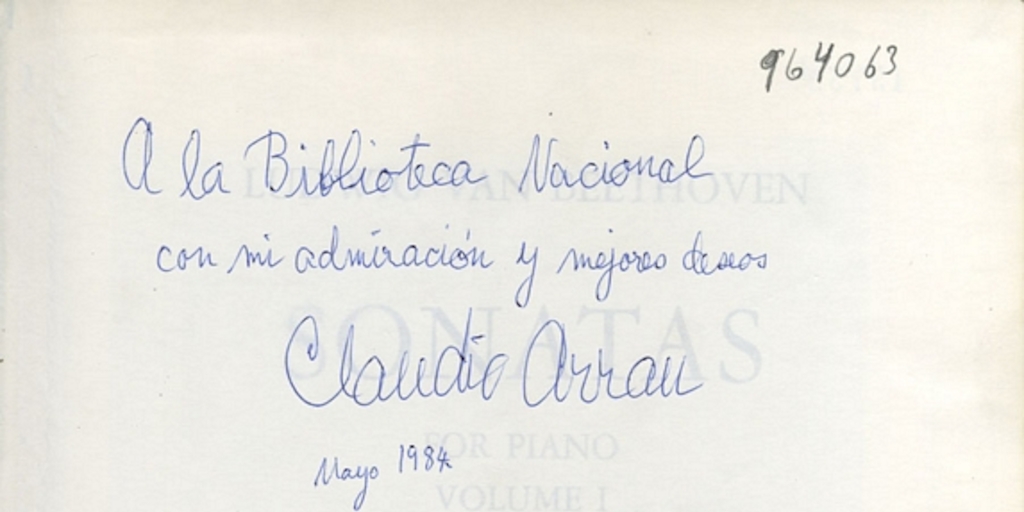 964063
A la Biblioteca Nacional
LUDWIG VAN BEETHOVEN
con mi admiración y mejores deseos
SONATAS
Claudio Arrau
FOR PIANO
Mayo 1984
VOLUME I